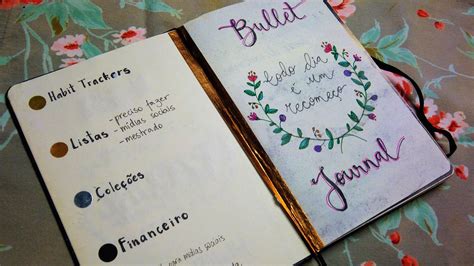 Habit Trackers
Listas
- preciso fazer
- mídias sociais
- mestrado
Coleções
Financeiro
para mídias sociais
Bullet
todo dia
é um
recomeço
Journal